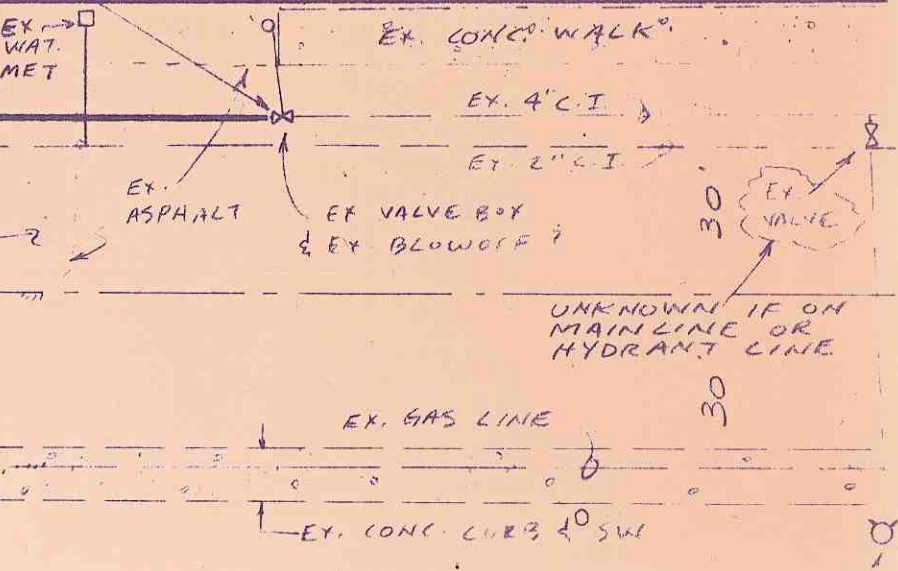 EX.
WAT.
MET
EX. CONC. WALK
EX. 4" C.I.
EX. 2" C.I.
EX.
ASPHALT
EX VALVE BOX
& EX BLOWOFF ?
30'
EX
VALVE
UNKNOWN IF ON
MAINLINE OR
HYDRANT LINE
30
EX. GAS LINE
EX. CONC. CURB & SW